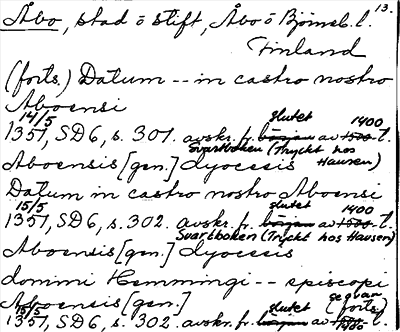 13.
Åbo, stad o stift, Åbo o Björneb. l.
Finland
(forts.) Datum -- in castro nostro
Aboensi
14/5 slutet 1400
1351, SD6, s. 301. avskr. fr. början av 1500-t.
Svartboken (Tryckt hos Hausen)
Aboensis [gen.] Dyocesis
Datum in castro nostro Aboensi
15/5 slutet 1400
1351, SD6, s. 302. avskr. fr. början av 1500-t.
Svartboken (Tryckt hos Hausen)
Aboensis [gen.] Dyocesis
domini Hemmingi -- episcopi
Aboensis [gen.] (forts.)
15/5 slutet
1351, SD6, s. 302 avskr. fr. början av t.